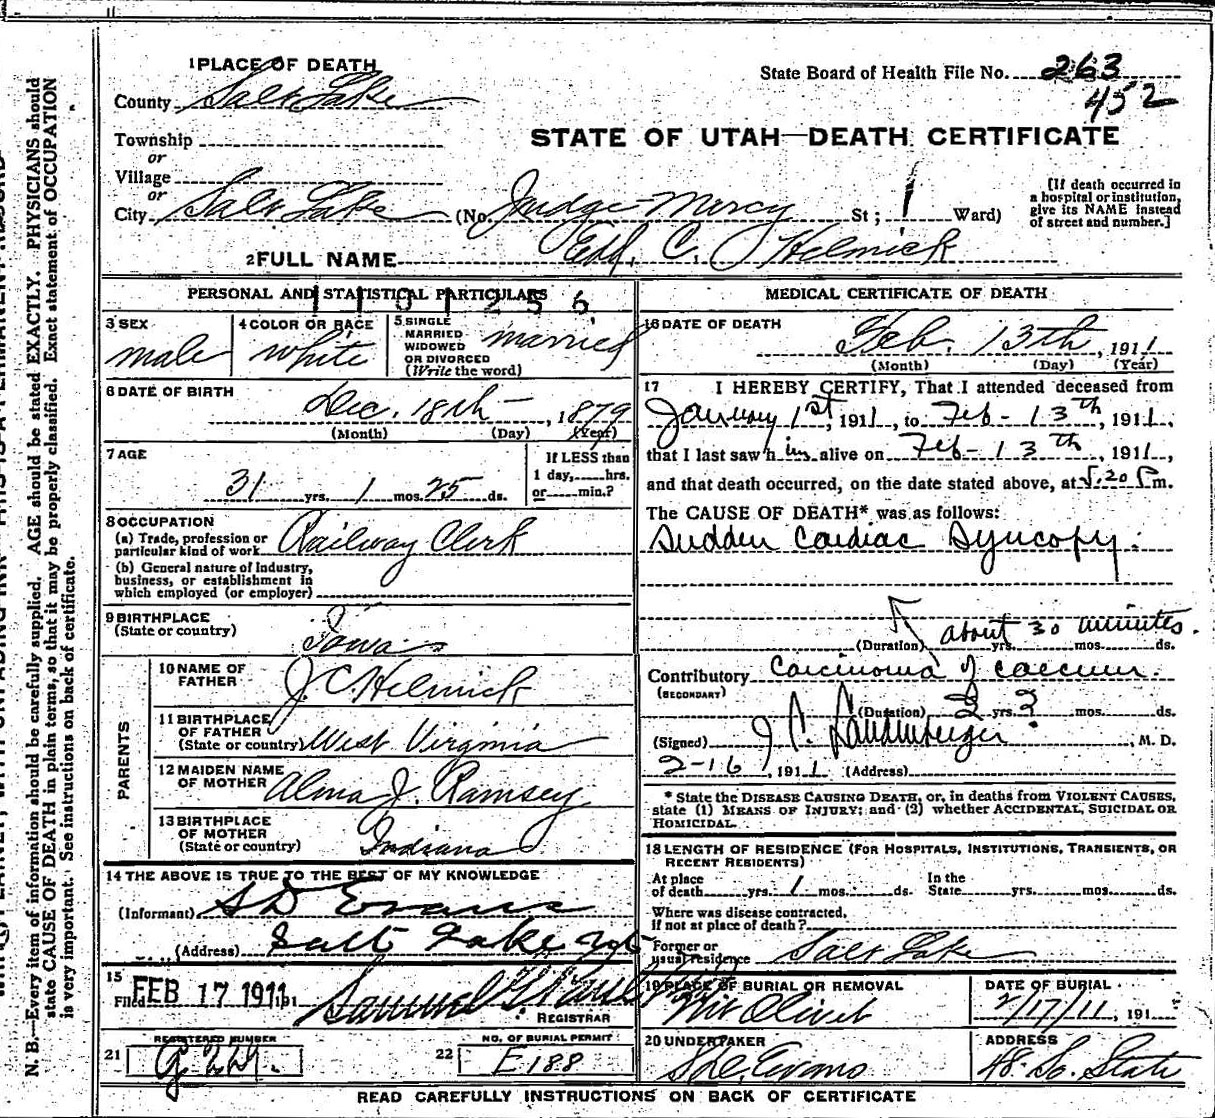 1 PLACE OF DEATH
County Salt Lake
State Board of Health File No. 263
452
Township
or
Village
or
STATE OF UTAH—DEATH CERTIFICATE
City Salt Lake (No. Judge Mercy St; 1 Ward)
[If death occurred in
a hospital or institution,
give its NAME instead
of street and number.]
2 FULL NAME Ed. C. Helmick
PERSONAL AND STATISTICAL PARTICULARS
1101256
3 SEX
male
4 COLOR OR RACE
white
5 SINGLE
MARRIED
WIDOWED
OR DIVORCED
(Write the word)
married
6 DATE OF BIRTH
Dec. 18th — , 1879
(Month) (Day) (Year)
7 AGE
31 yrs. 1 mos. 25 ds.
If LESS than
1 day, hrs.
or min.?
8 OCCUPATION
(a) Trade, profession or
particular kind of work Railway Clerk
(b) General nature of Industry,
business, or establishment in
which employed (or employer)
9 BIRTHPLACE
(State or country)
Iowa
PARENTS
10 NAME OF
FATHER J. C. Helmick
11 BIRTHPLACE
OF FATHER
(State or country) West Virginia
12 MAIDEN NAME
OF MOTHER Alma J. Ramsey
13 BIRTHPLACE
OF MOTHER
(State or country) Indiana
14 THE ABOVE IS TRUE TO THE BEST OF MY KNOWLEDGE
(Informant) S D Evans
(Address) Salt Lake
15
Filed FEB 17 1911, 191
Samuel G.
REGISTRAR
21 REGISTERED NUMBER
G 229.
22 NO. OF BURIAL PERMIT
E188
MEDICAL CERTIFICATE OF DEATH
16 DATE OF DEATH
Feb. 13th, 1911
(Month) (Day) (Year)
17 I HEREBY CERTIFY, That I attended deceased from
January 1st, 1911, to Feb-13th, 1911,
that I last saw him alive on Feb-13th, 1911,
and that death occurred, on the date stated above, at 5.20 P m.
The CAUSE OF DEATH* was as follows:
Sudden Cardiac Syncopy.
about 30 minutes.
(Duration) yrs. mos. ds.
Contributory Carcinoma of caecum.
(SECONDARY)
(Duration) 2 yrs ? mos. ds.
(Signed) J C. Landenberger, M. D.
2-16, 1911 (Address)
* State the DISEASE CAUSING DEATH, or, in deaths from VIOLENT CAUSES,
state (1) MEANS OF INJURY; and (2) whether ACCIDENTAL, SUICIDAL OR
HOMICIDAL.
18 LENGTH OF RESIDENCE (FOR HOSPITALS, INSTITUTIONS, TRANSIENTS, OR
RECENT RESIDENTS)
At place
of death yrs. 1 mos. ds.
In the
State yrs. mos. ds.
Where was disease contracted,
if not at place of death?
Former or
usual residence Salt Lake
19 PLACE OF BURIAL OR REMOVAL
Mt Olivet
DATE OF BURIAL
2/17/11, 191
20 UNDERTAKER
S.D. Evans
ADDRESS
48. So. State
READ CAREFULLY INSTRUCTIONS ON BACK OF CERTIFICATE
N. B.—Every item of information should be carefully supplied. AGE should be stated EXACTLY. PHYSICIANS should
state CAUSE OF DEATH in plain terms, so that it may be properly classified. Exact statement of OCCUPATION
is very important. See instructions on back of certificate.